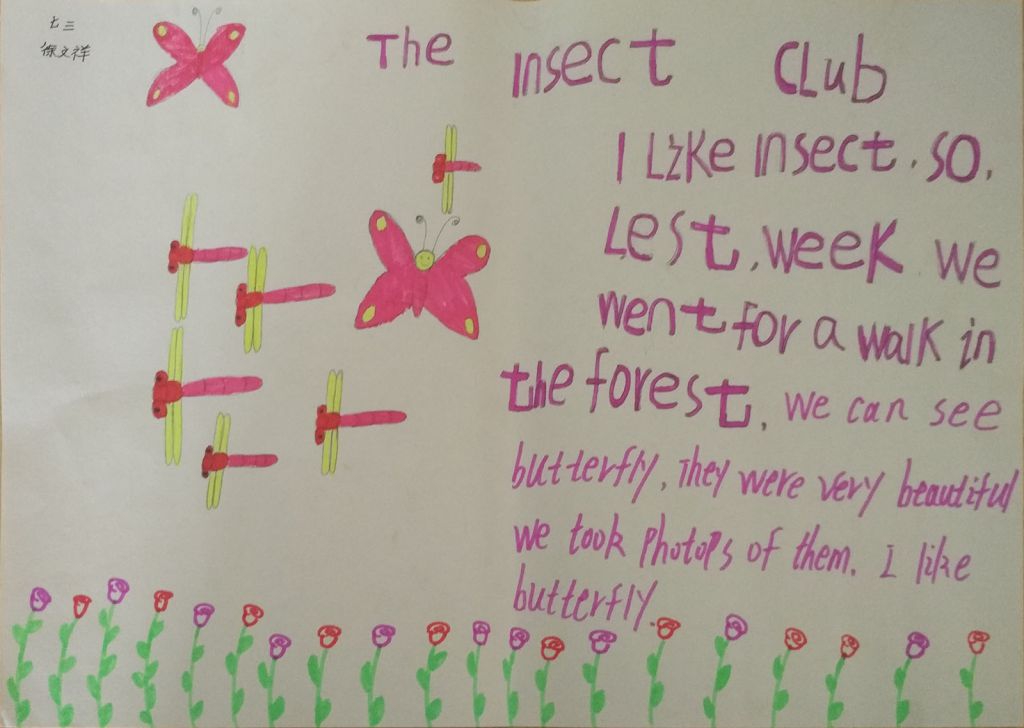 七三
徐文祥
The insect Club
I Like insect. so,
Lest, week we
went for a walk in
the forest, we can see
butterfly, They were very beautiful
we took photops of them. I like
butterfly.